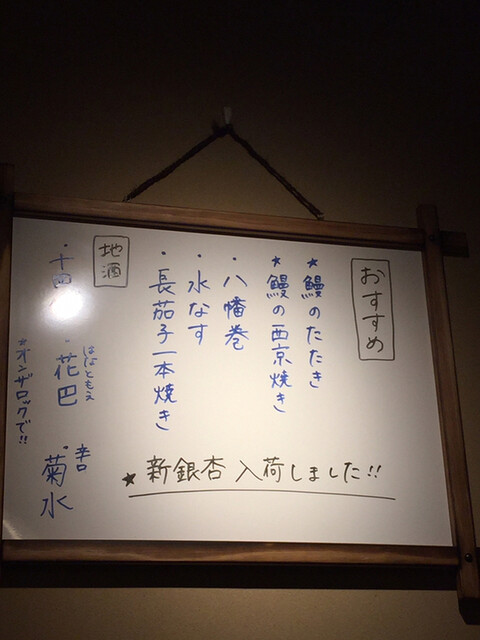 おすすめ
★鰻のたたき
★鰻の西京焼き
・八幡巻
・水なす
・長茄子一本焼き
★新銀杏入荷しました!!
地酒
・十四
・花巴
はなともえ
*オンザロックで!!
・菊水
辛口